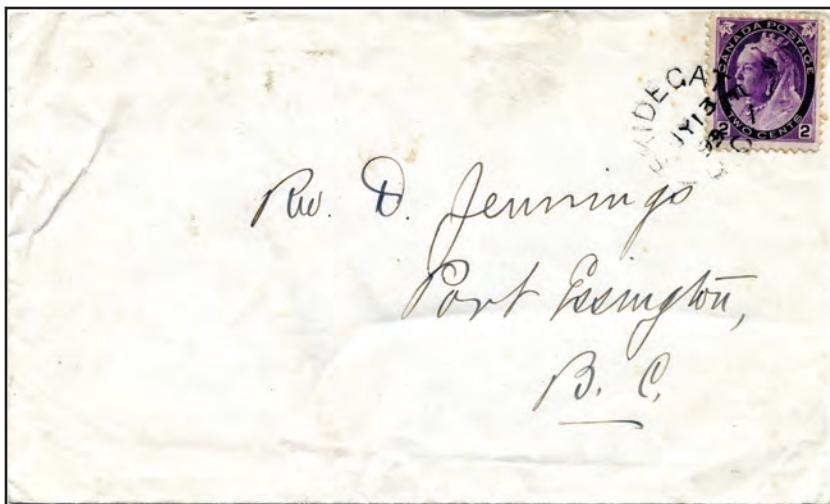 CANADA POSTAGE
TWO CENTS
2 2
JY 13
99
Rev. D. Jennings
Port Essington,
B. C.